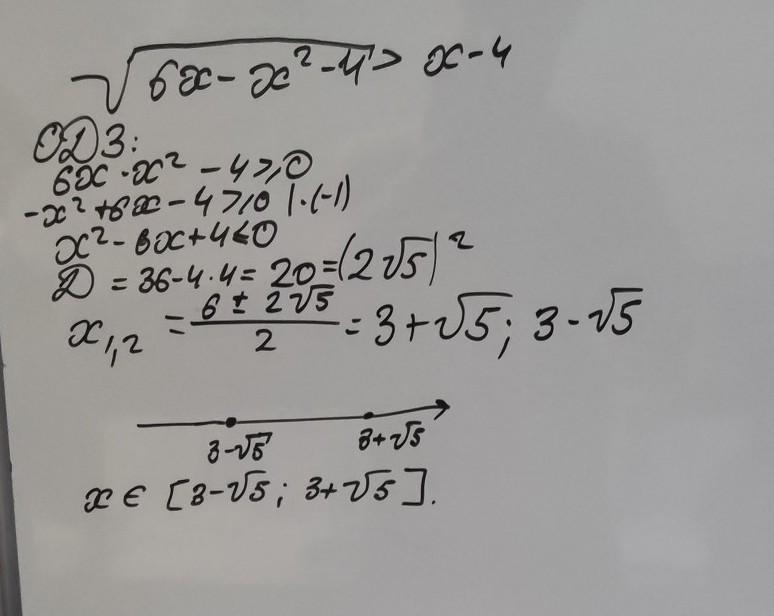 √(6x - x² - 4) > x - 4
ОДЗ:
6x - x² - 4 ⩾ 0
-x² + 6x - 4 ⩾ 0 | · (-1)
x² - 6x + 4 ⩽ 0
D = 36 - 4 · 4 = 20 = (2√5)²
x₁,₂ = (6 ± 2√5)/2 = 3 + √5; 3 - √5
3-√5 3+√5
x ∈ [3-√5; 3+√5].